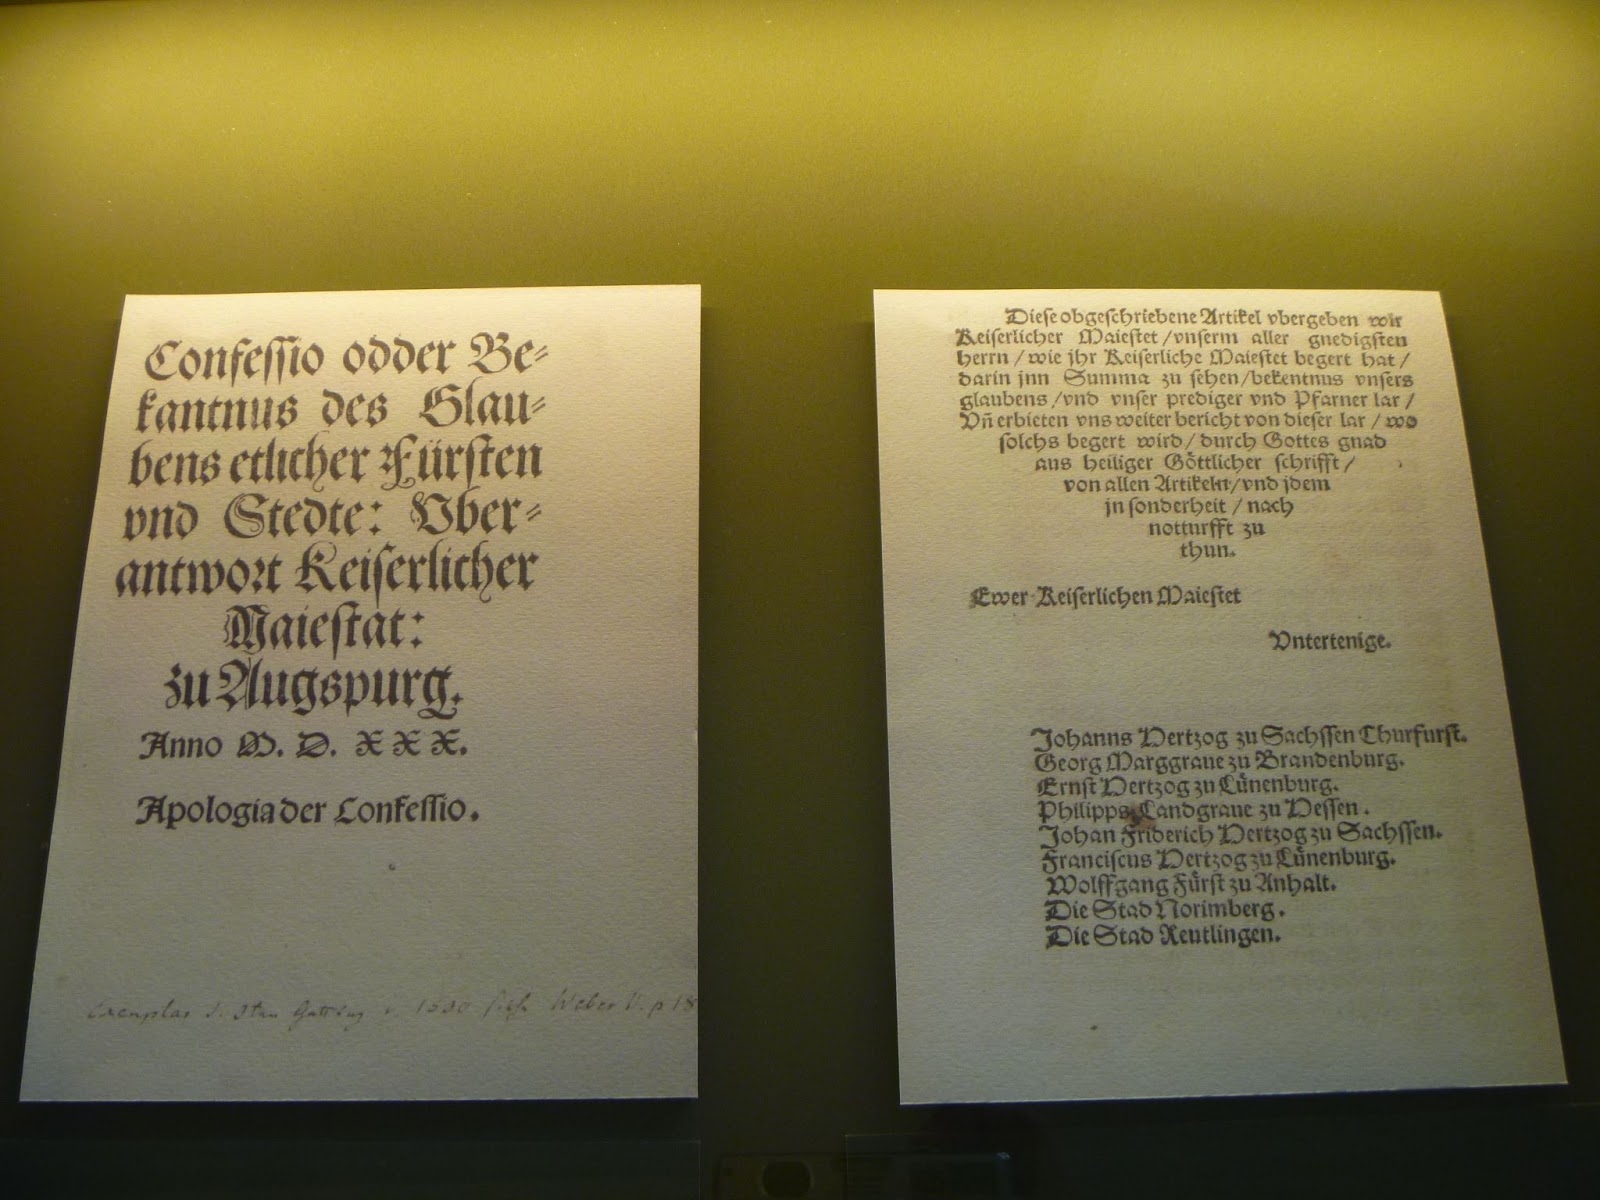 Confessio odder Be⸗
kantnus des Glau⸗
bens etlicher Fürsten
vnd Stedte: Vber⸗
antwort Keiserlicher
Maiestat:
zu Augspurg.
Anno M. D. XXX.
Apologia der Confessio.
Exemplar Weber p 18
Diese obgeschriebene Artikel vbergeben wir
Keiserlicher Maiestet / vnserm aller gnedigsten
herrn / wie jhr Keiserliche Maiestet begert hat /
darin jnn Summa zu sehen / bekentnus vnsers
glaubens / vnd vnser prediger vnd Pfarner lar /
Vñ erbieten vns weiter bericht von dieser lar / wo
solchs begert wird / durch Gottes gnad
aus heiliger Göttlicher schrifft /
von allen Artikeln / vnd jdem
jn sonderheit / nach
notturfft zu
thun.
Ewer Keiserlichen Maiestet
Vntertenige.
Johanns Hertzog zu Sachssen Churfurst.
Georg Marggraue zu Brandenburg.
Ernst Hertzog zu Lünenburg.
Philipps Landgraue zu Hessen.
Johan Friderich Hertzog zu Sachssen.
Franciscus Hertzog zu Lünenburg.
Wolffgang Fürst zu Anhalt.
Die Stad Norimberg.
Die Stad Reutlingen.